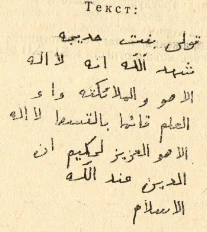 Текст:
قولى بنت
شهد الله انه لا اله
الا هو والملائكته واو
العلم قائما بالقسط لا اله
الا هو العزيز لحكيم ان
الدين عند الله
الاسلام